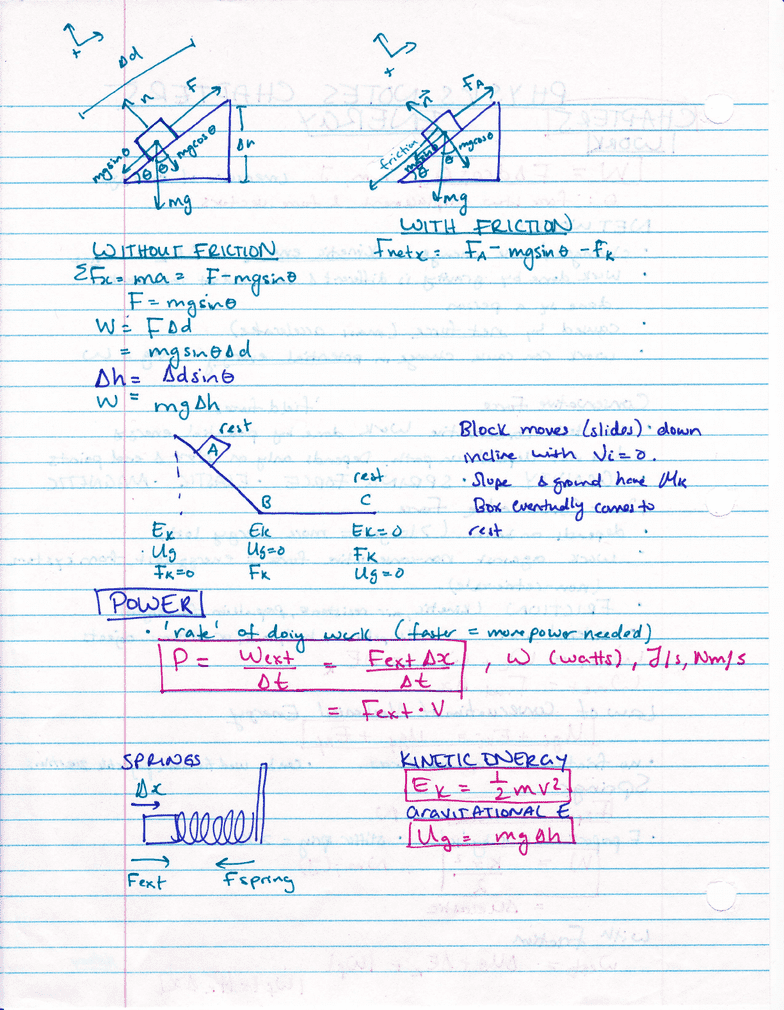 +
Δd
n
F
mgsinθ
mgcosθ
θ
θ
Δh
mg
+
n
F_A
friction
mgsinθ
mgcosθ
θ
θ
mg
WITHOUT FRICTION
ΣFx = ma = F - mgsinθ
F = mgsinθ
W = FΔd
= mgsinθΔd
Δh = Δdsinθ
W = mgΔh
WITH FRICTION
Fnetx = F_A - mgsinθ - f_K
rest
A
B
rest
C
Ek Ek Ek=0
Ug Ug=0 Fk
Fk=0 Fk Ug=0
Block moves (slides) down
incline with Vi=0.
· Slope & ground have μk
Box eventually comes to
rest
POWER
· 'rate' of doing work (faster = more power needed)
P = Wext/Δt = FextΔx/Δt , W (watts), J/s, Nm/s
= Fext · V
SPRINGS
Δx
Fext Fspring
KINETIC ENERGY
Ek = 1/2 mv²
GRAVITATIONAL E
Ug = mgΔh